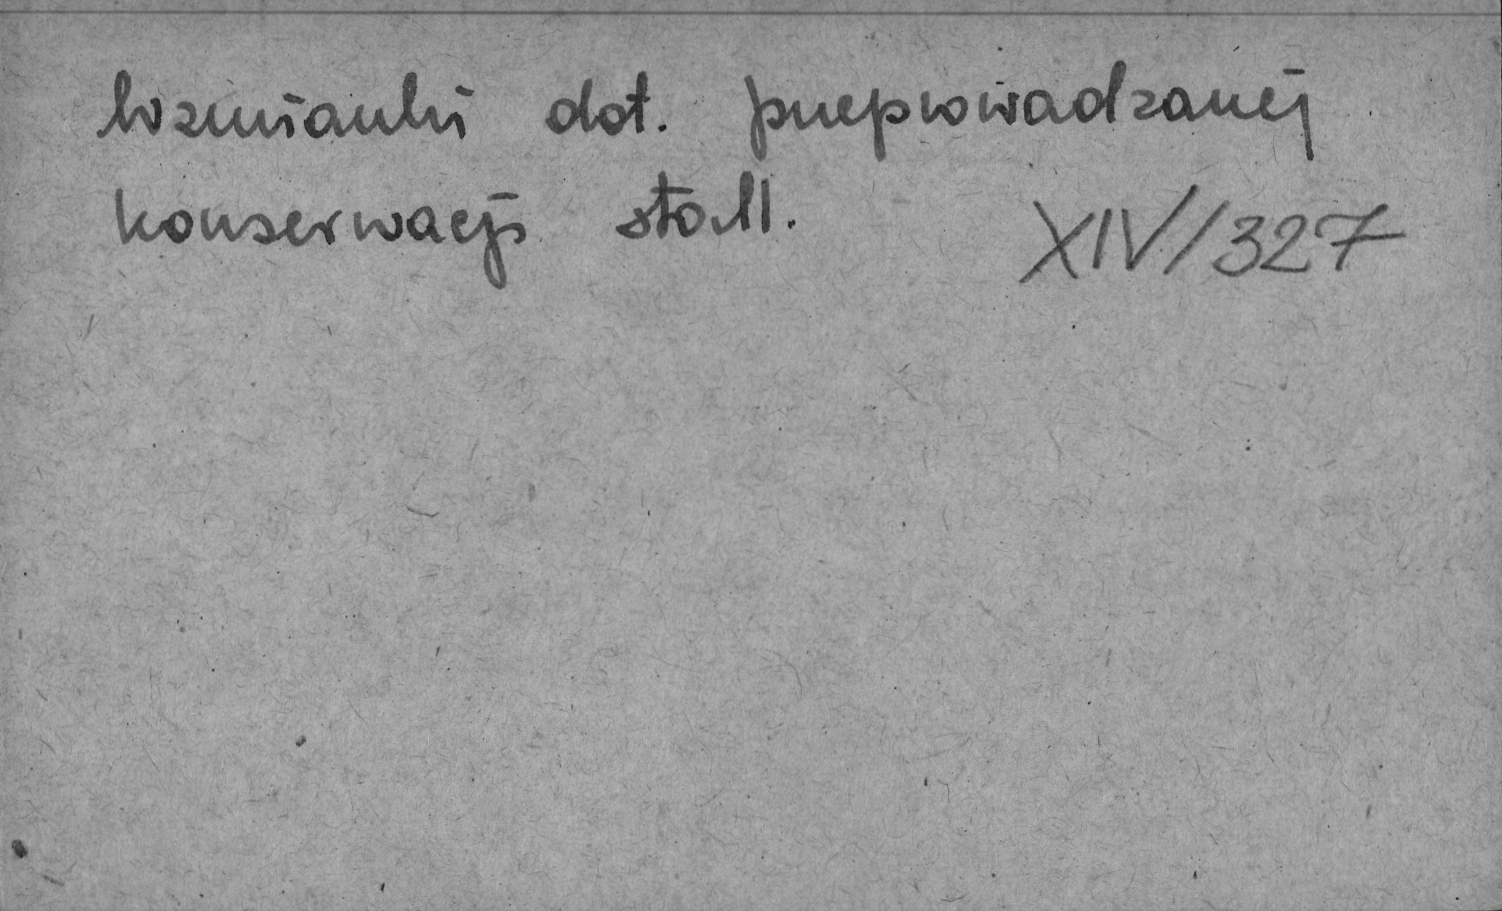 Wzmianki dot. przeprowadzanej
konserwacji stall.
XIV/327